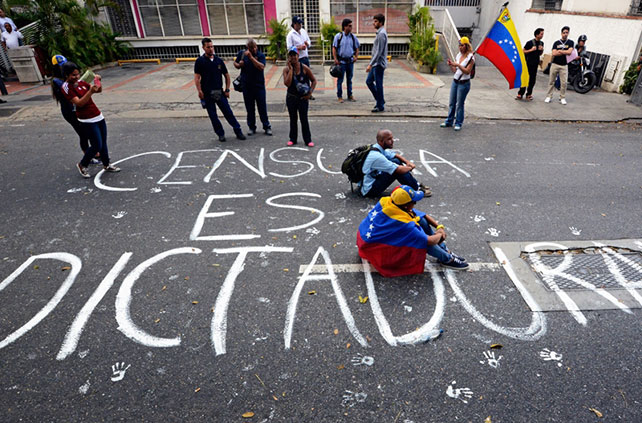 CENSURA
ES
DICTADURA